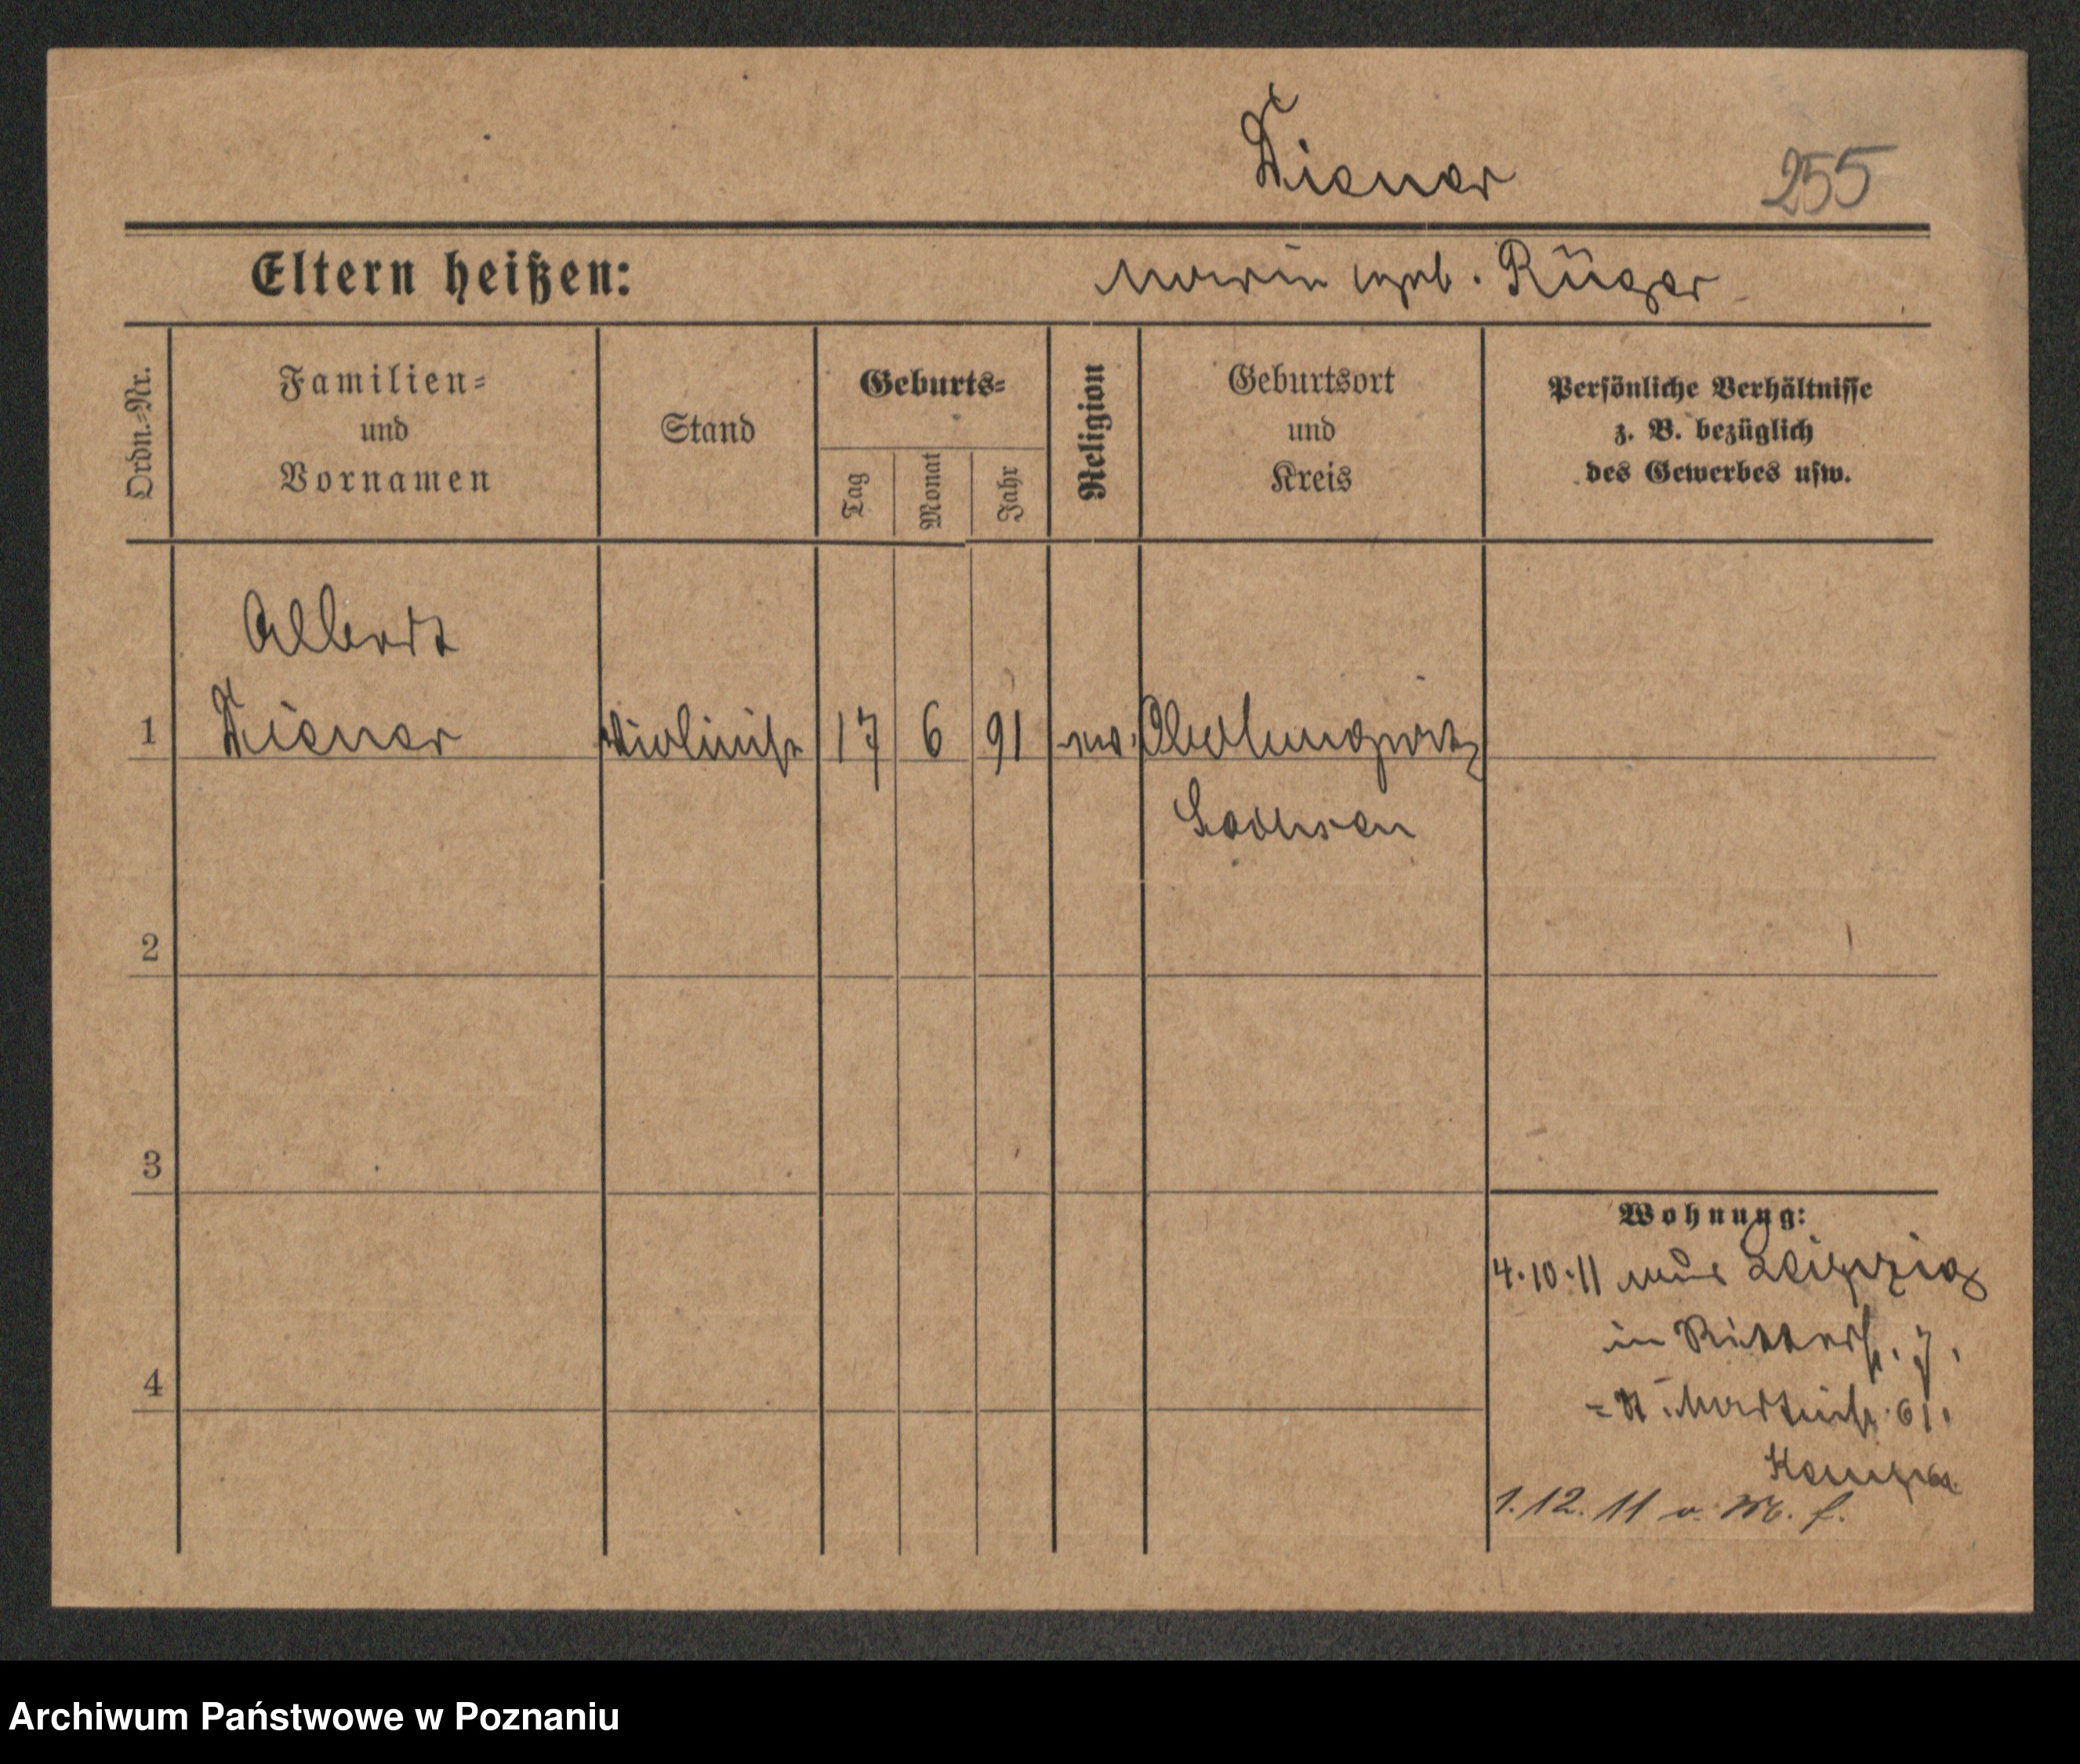 Diener
255
Eltern heißen: Marie geb. Rüger
Ordn.-Nr.
Familien-
und
Vornamen
Stand
Geburts-
Tag
Monat
Jahr
Religion
Geburtsort
und
Kreis
Persönliche Verhältnisse
z. B. bezüglich
des Gewerbes usw.
Albert
1 Diener Violinist 17 6 91 ev. Oberlungwitz
Sachsen
2
3
Wohnung:
4.10.11 aus Leipzig
in Ritterst. 7.
4
= St. Martinst. 61.
1.12.11 v. M. f.
Archiwum Państwowe w Poznaniu